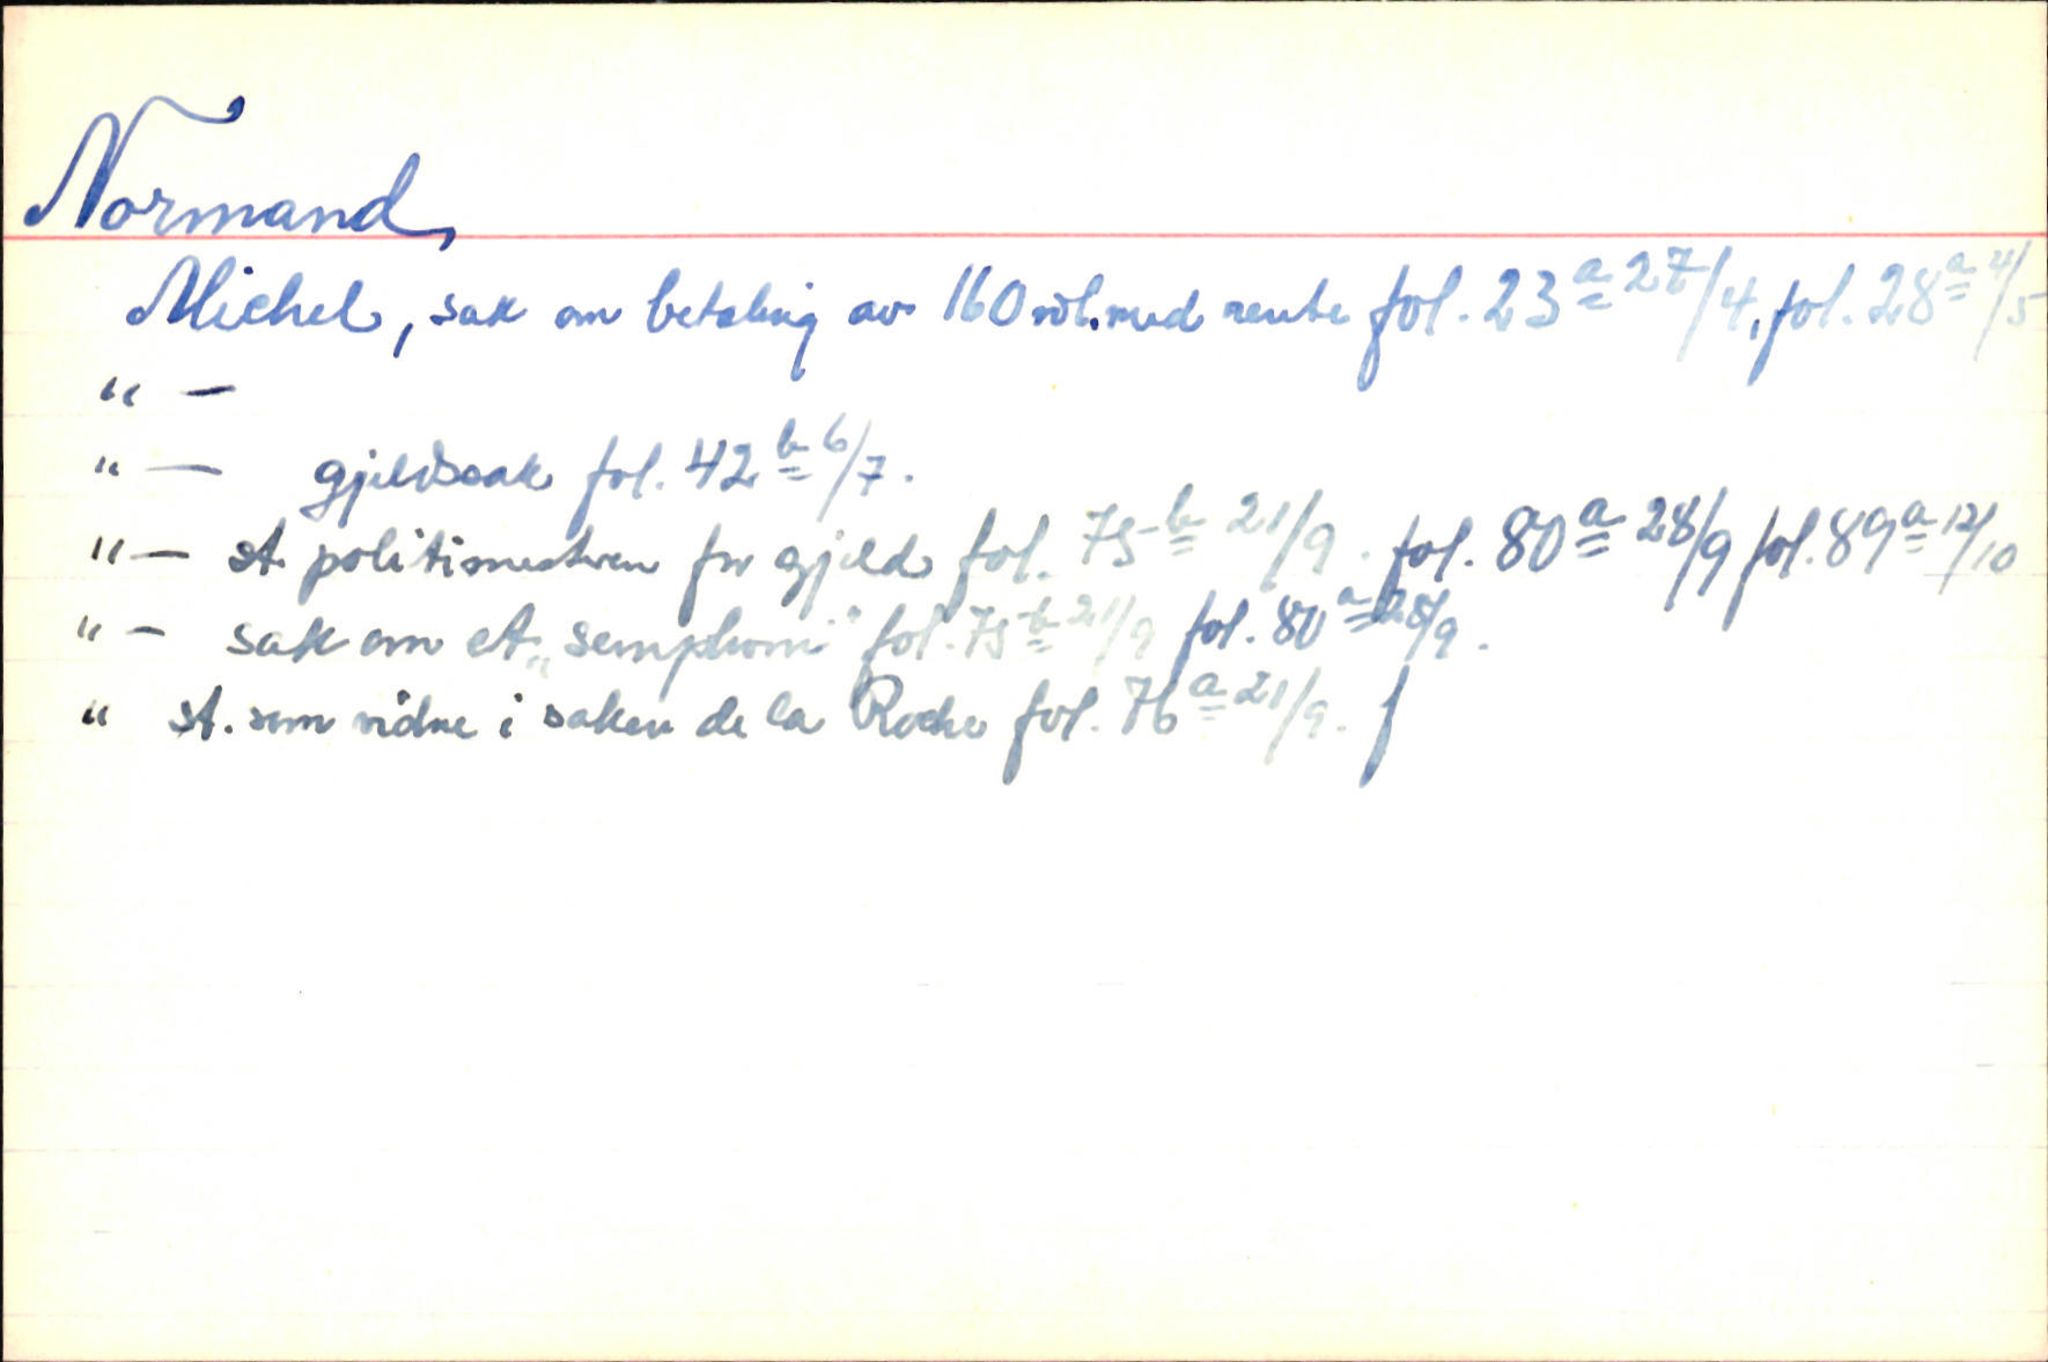 Normand,
Michel, sak om betaling av 160 rdl. med rente fol. 23a 27/4, fol. 28a 4/5
" —
" — gjeldssak fol. 42b 6/7.
" — st. politimesteren for gjeld fol. 75b 21/9. fol. 80a 28/9 fol. 89a 12/10
" — sak om et „semphoni" fol. 75b 21/9 fol. 80a 28/9.
" st. som vidne i saken de la Roche fol. 76a 21/9.